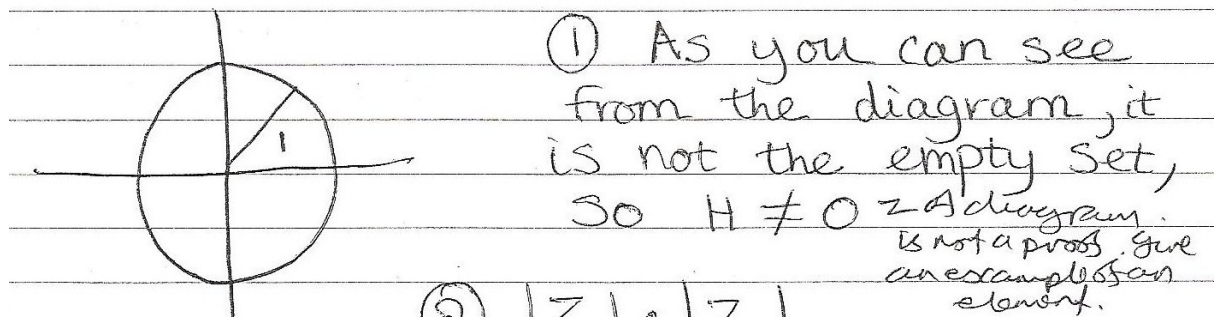 ① As you can see
from the diagram, it
is not the empty set,
So H ≠ O A diagram
is not a proof. Give
an example of an
element.
1
② |Z|·|Z|